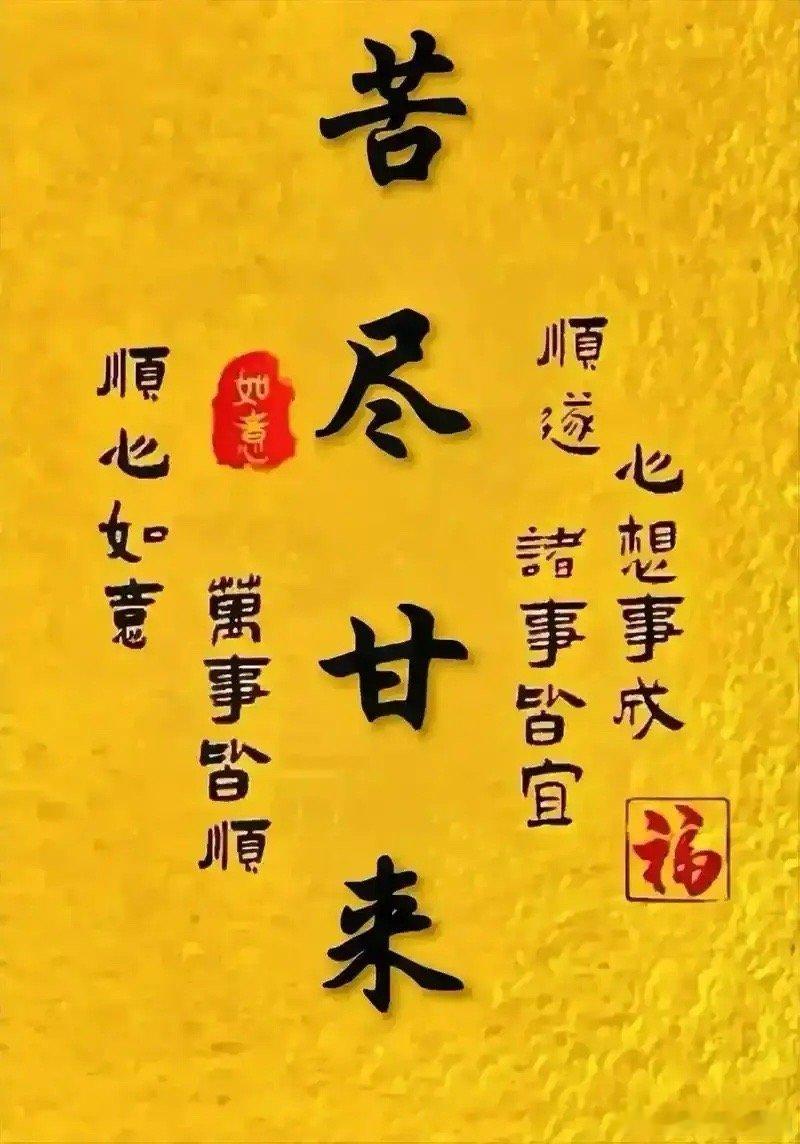 心想事成
福
順遂
諸事皆宜
苦尽甘来
如意
萬事皆順
順心如意